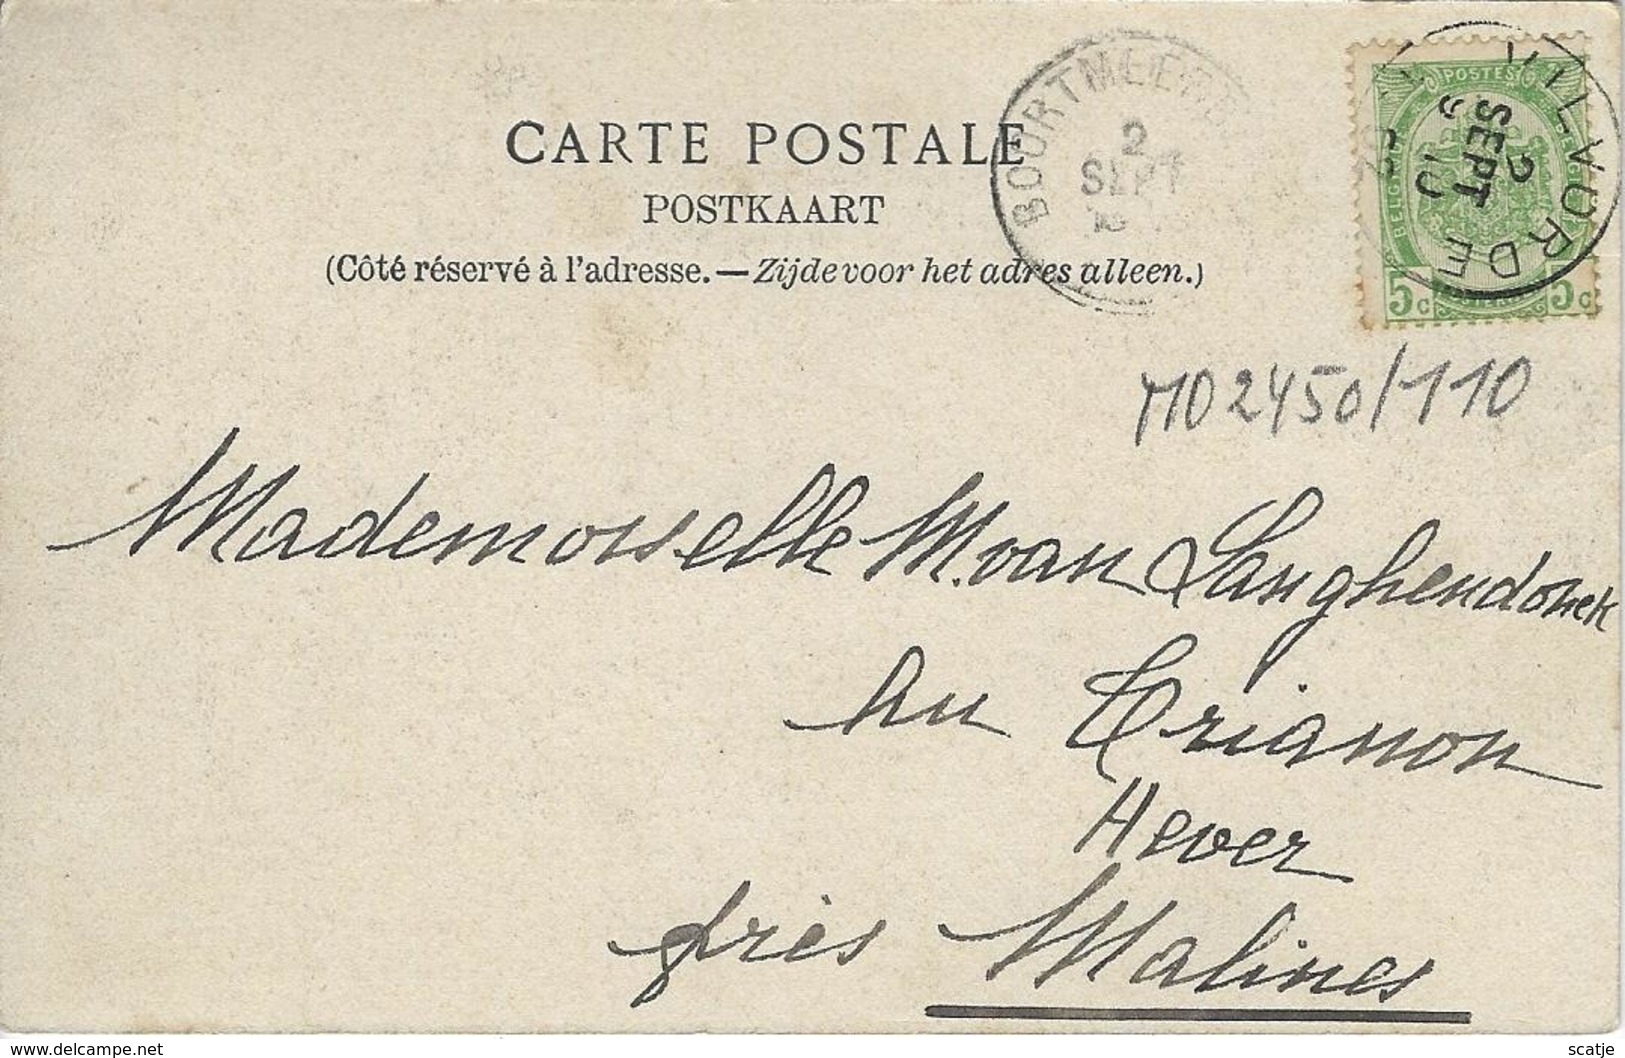 CARTE POSTALE
POSTKAART
(Côté réservé à l'adresse. — Zijde voor het adres alleen.)
BOORTMEER
2
SEPT
VILVORDE
2
SEPT
POSTES
5c 5c
M02450/110
Mademoiselle M. van Langhendonck
au Trianon
Hever
près Malines
www.delcampe.net
scatje